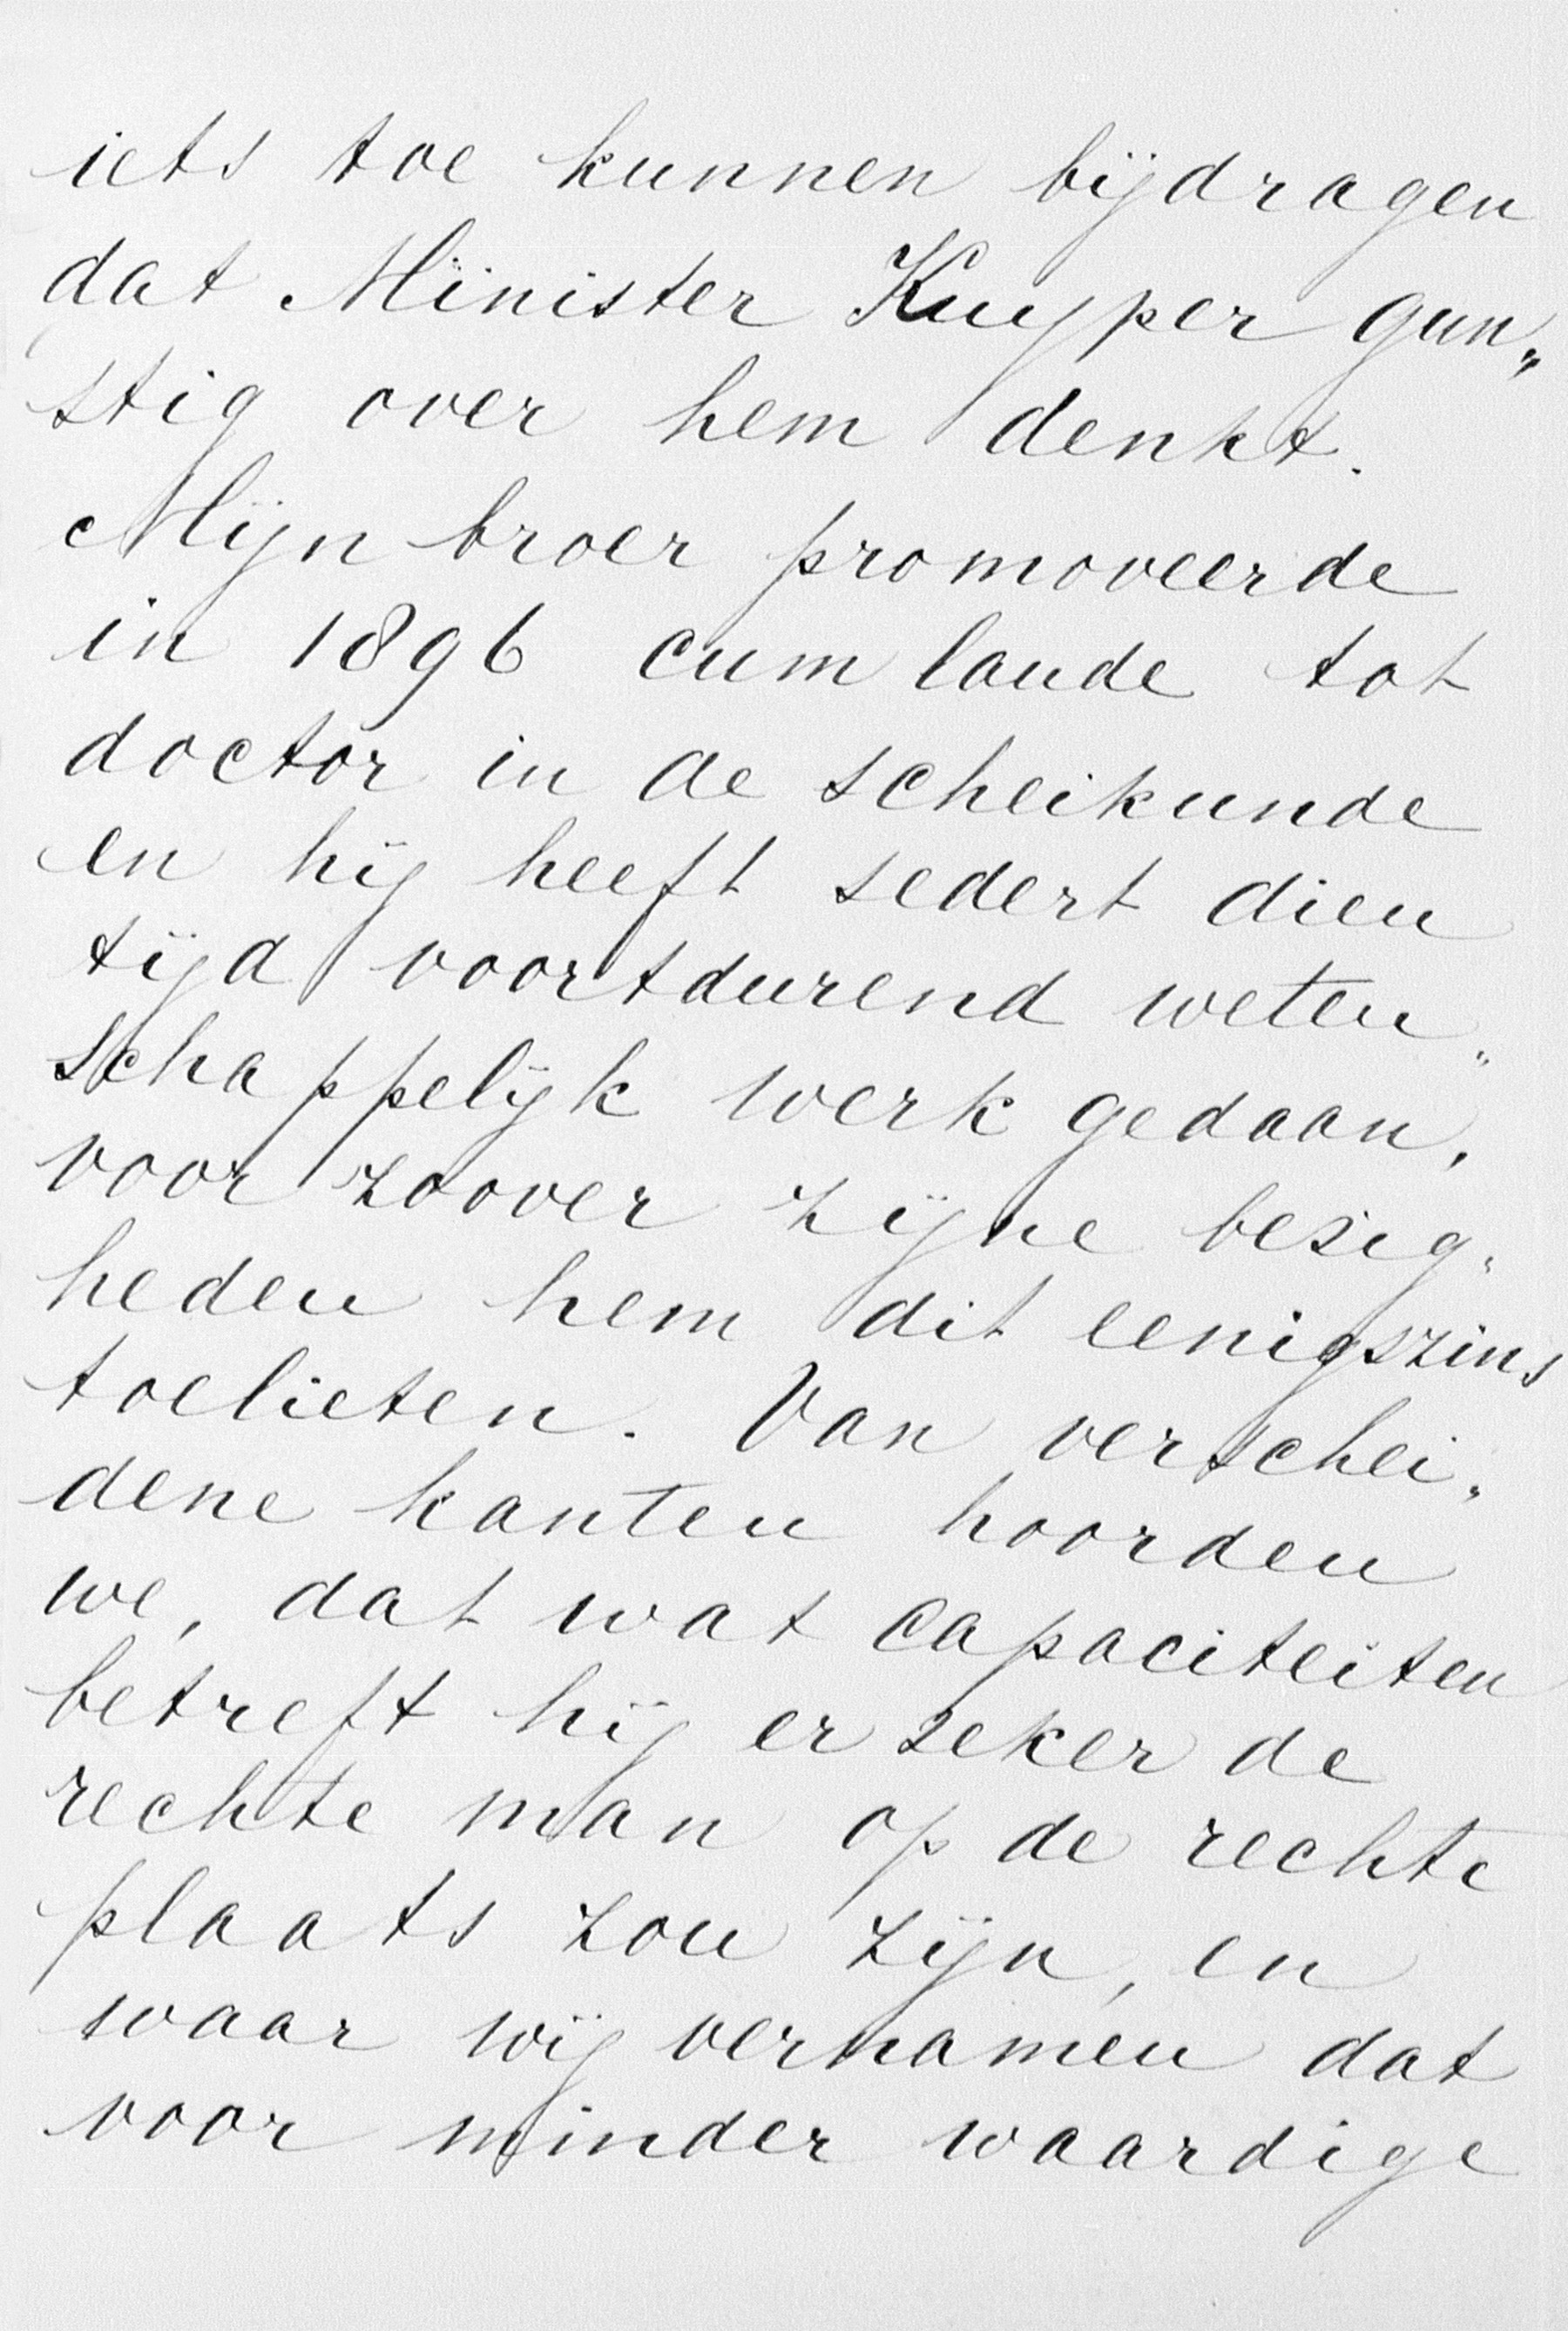 iets toe kunnen bijdragen
dat Minister Kuyper gun„
stig over hem denkt.
Mijn broer promoveerde
in 1896 cum laude tot
doctor in de scheikunde
en hij heeft sedert dien
tijd voortdurend weten„
schappelijk werk gedaan,
voor zoover zijne bezig„
heden hem dit eenigszins
toelieten. Van verschei„
dene kanten hoorden
we, dat wat capaciteiten
betreft hij er zeker de
rechte man op de rechte
plaats zou zijn, en
waar wij vernamen dat
voor minder waardige